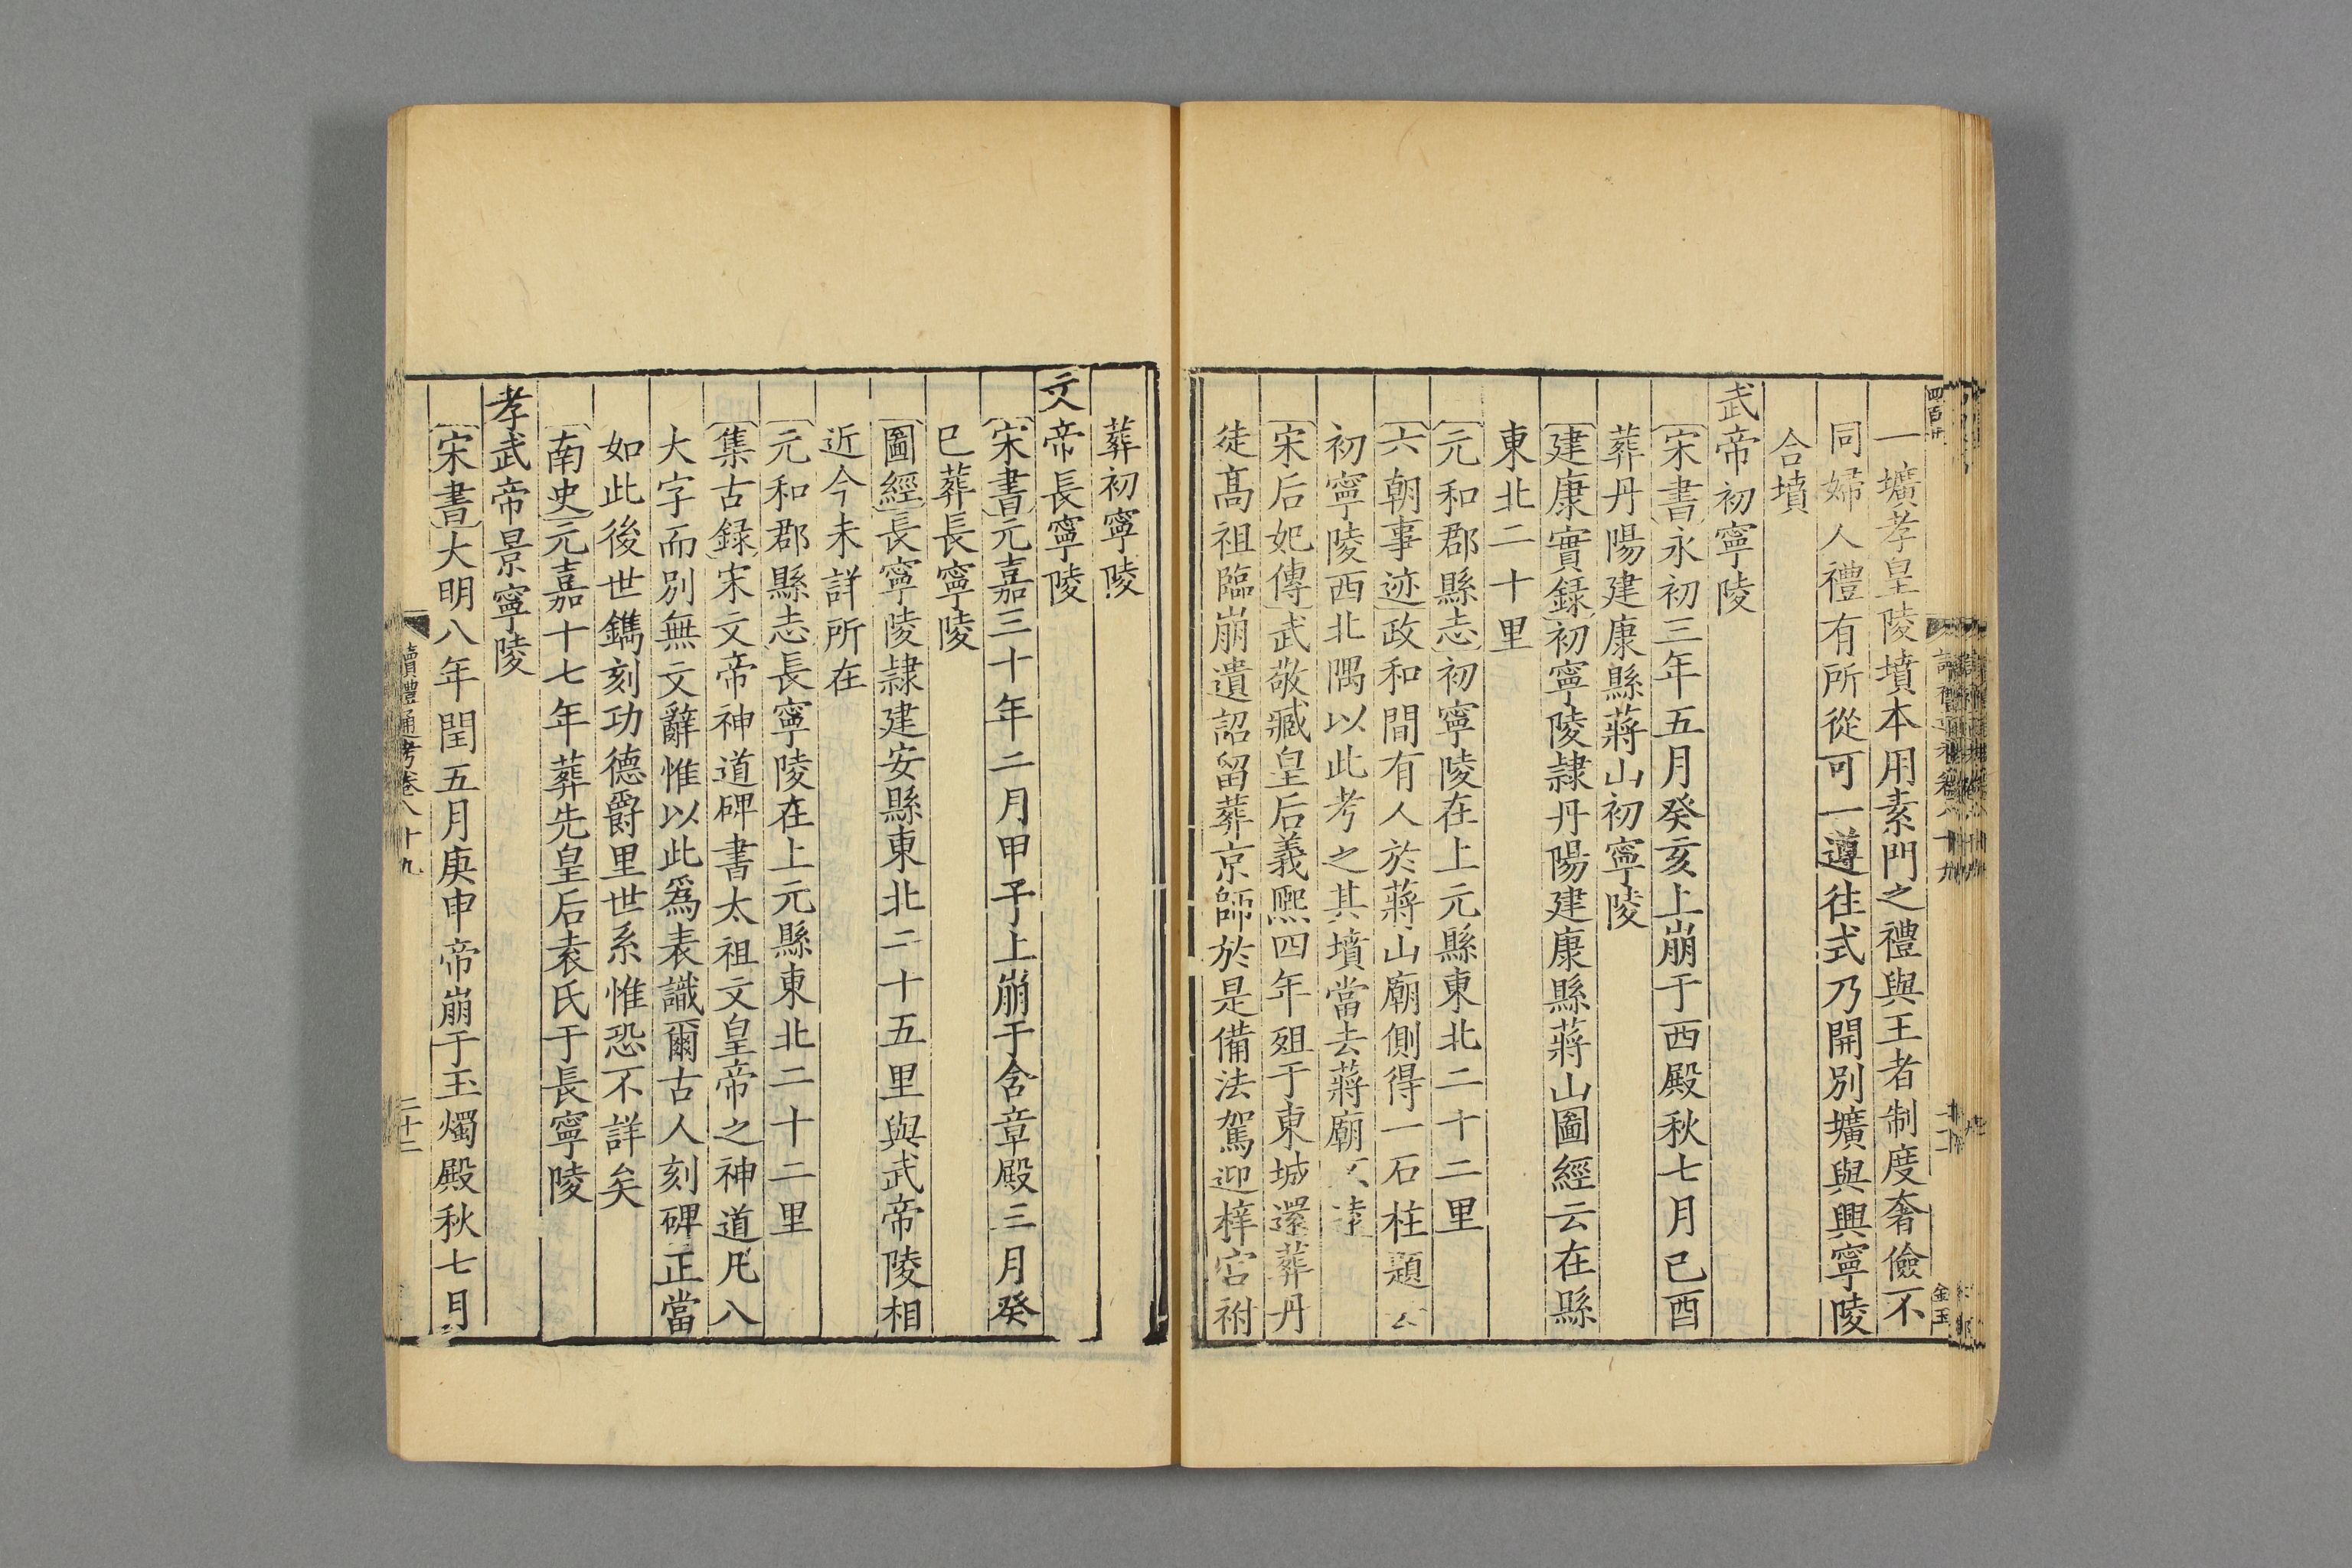 一壙孝皇陵墳本用素門之禮與王者制度奢儉不
同婦人禮有所從可一遵往式乃開別壙與興寧陵
合墳
武帝初寧陵
〔宋書〕永初三年五月癸亥上崩于西殿秋七月己酉
葬丹陽建康縣蔣山初寧陵
〔建康實録〕初寧陵隷丹陽建康縣蔣山圖經云在縣
東北二十里
〔元和郡縣志〕初寧陵在上元縣東北二十二里
〔六朝事迹〕政和間有人於蔣山廟側得一石柱題
初寧陵西北隅以此考之其墳當去蔣廟不遠
〔宋后妃傳〕武敬臧皇后義熙四年殂于東城還葬丹
徒高祖臨崩遺詔留葬京師於是備法駕迎梓宮祔
葬初寧陵
文帝長寧陵
〔宋書〕元嘉三十年二月甲子上崩于含章殿三月癸
巳葬長寧陵
〔圖經〕長寧陵隷建安縣東北二十五里與武帝陵相
近今未詳所在
〔元和郡縣志〕長寧陵在上元縣東北二十二里
〔集古録〕宋文帝神道碑書太祖文皇帝之神道凡八
大字而別無文辭惟以此爲表識爾古人刻碑正當
如此後世鐫刻功德爵里世系惟恐不詳矣
〔南史〕元嘉十七年葬先皇后袁氏于長寧陵
孝武帝景寧陵
〔宋書〕大明八年閏五月庚申帝崩于玉燭殿秋七月
讀禮通考卷八十九
二十二